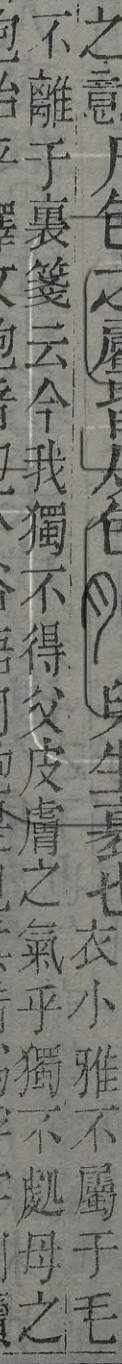 之意凡包之屬皆从包 兒生裹也衣小雅不屬于毛
不離于裏箋云今我獨不得父皮膚之氣乎獨不処母之
胞胎乎釋文胞音包